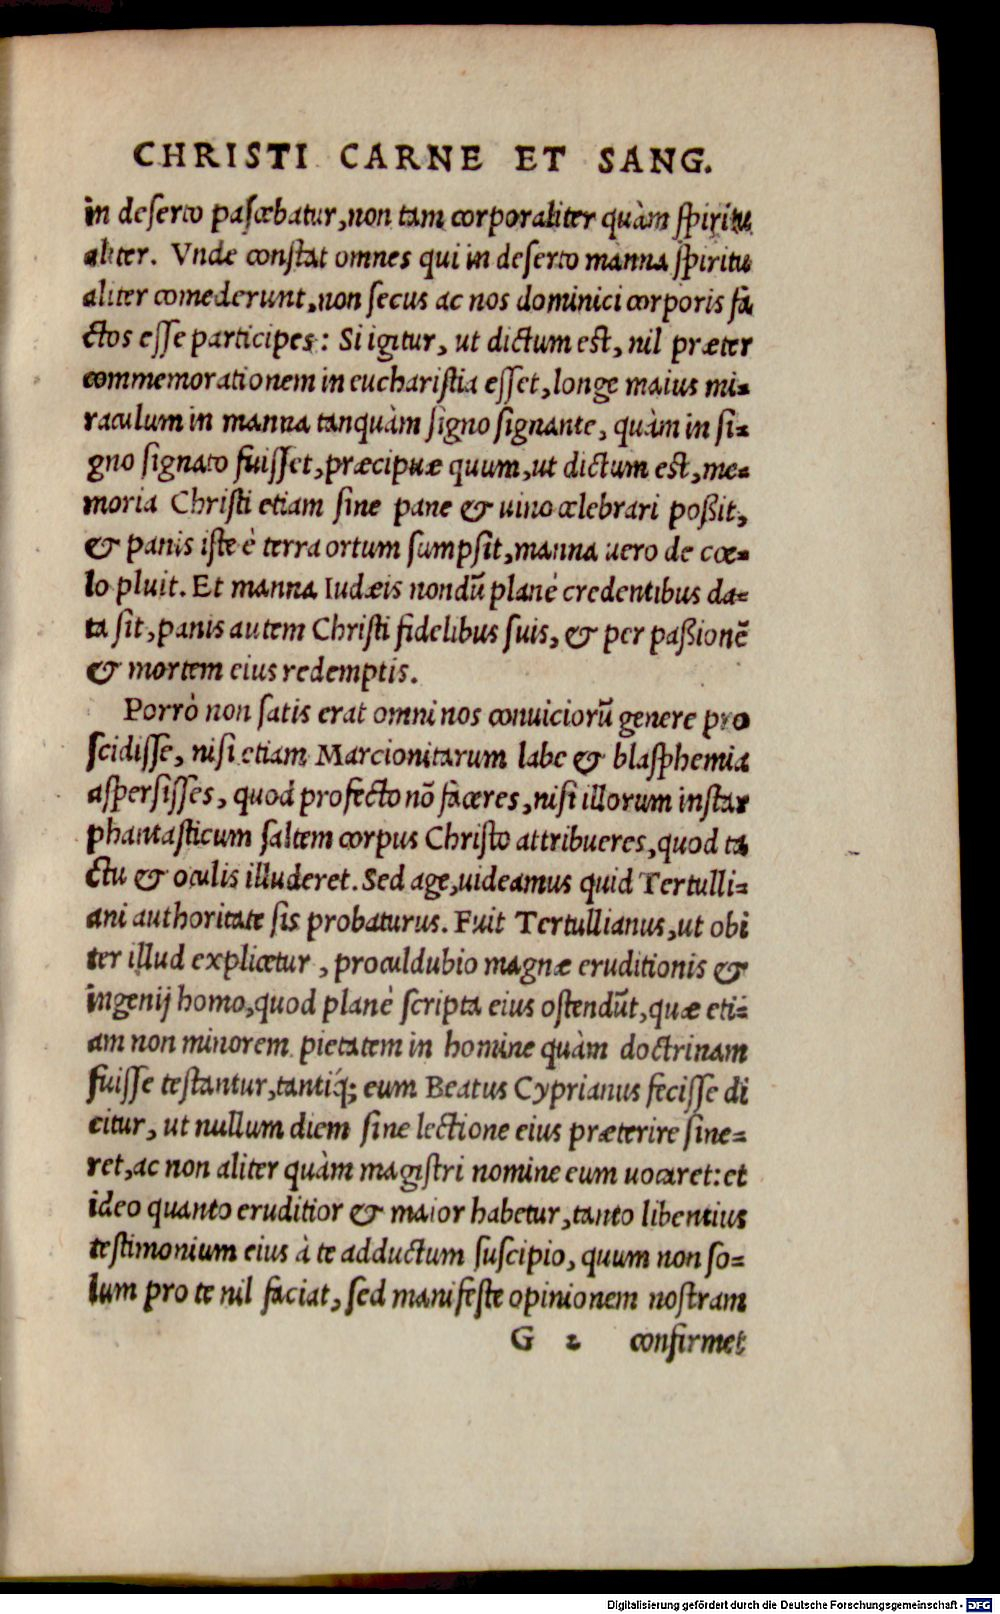 CHRISTI CARNE ET SANG.
in deserto pascebatur, non tam corporaliter quàm spiritu
aliter. Vnde constat omnes qui in deserto manna spiritu
aliter comederunt, non secus ac nos dominici corporis fa
ctos esse participes: Si igitur, ut dictum est, nil præter
commemorationem in eucharistia esset, longe maius mi-
raculum in manna tanquàm signo signante, quàm in si-
gno signato fuisset, præcipuæ quum, ut dictum est, me-
moria Christi etiam sine pane & uino celebrari poßit,
& panis iste è terra ortum sumpsit, manna uero de cœ-
lo pluit. Et manna Iudæis nondũ planè credentibus da-
ta sit, panis autem Christi fidelibus suis, & per paßionẽ
& mortem eius redemptis.
Porrò non satis erat omni nos conuiciorũ genere pro
scidisse, nisi etiam Marcionitarum labe & blasphemia
aspersisses, quod profecto nõ faceres, nisi illorum instar
phantasticum saltem corpus Christo attribueres, quod ta
ctu & oculis illuderet. Sed age, uideamus quid Tertulli-
ani authoritate sis probaturus. Fuit Tertullianus, ut obi
ter illud explicetur, proculdubio magnæ eruditionis &
ingenij homo, quod planè scripta eius ostendũt, quæ eti-
am non minorem pietatem in homine quàm doctrinam
fuisse testantur, tantiq́; eum Beatus Cyprianus fecisse di
citur, ut nullum diem sine lectione eius præterire sine-
ret, ac non aliter quàm magistri nomine eum uocaret: et
ideo quanto eruditior & maior habetur, tanto libentius
testimonium eius à te adductum suscipio, quum non so-
lum pro te nil faciat, sed manifeste opinionem nostram
G 2 confirmet
Digitalisierung gefördert durch die Deutsche Forschungsgemeinschaft - DFG